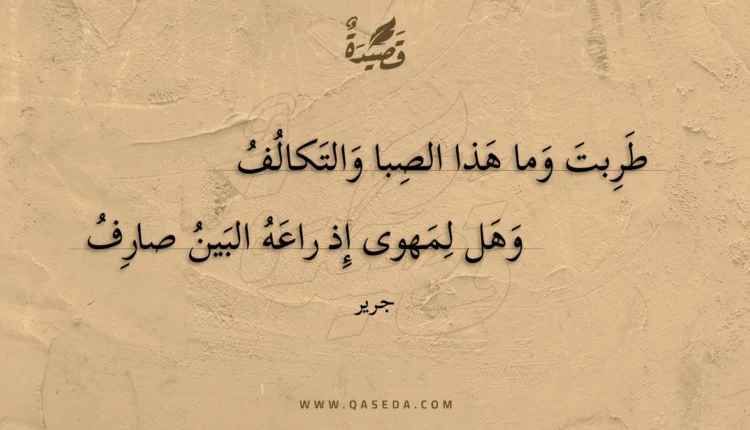 قَصِيدَةٌ
طَرِبتَ وَما هَذا الصِبا وَالتَكالُفُ
وَهَل لِمَهوى إِذ راعَهُ البَينُ صارِفُ
جرير
WWW.QASEDA.COM